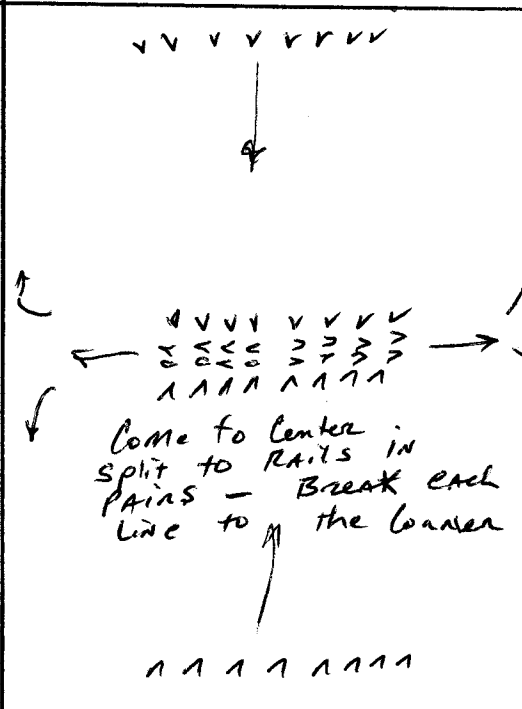 Come to Center
split to RAils in
PAirs — Break each
Line to the Corner